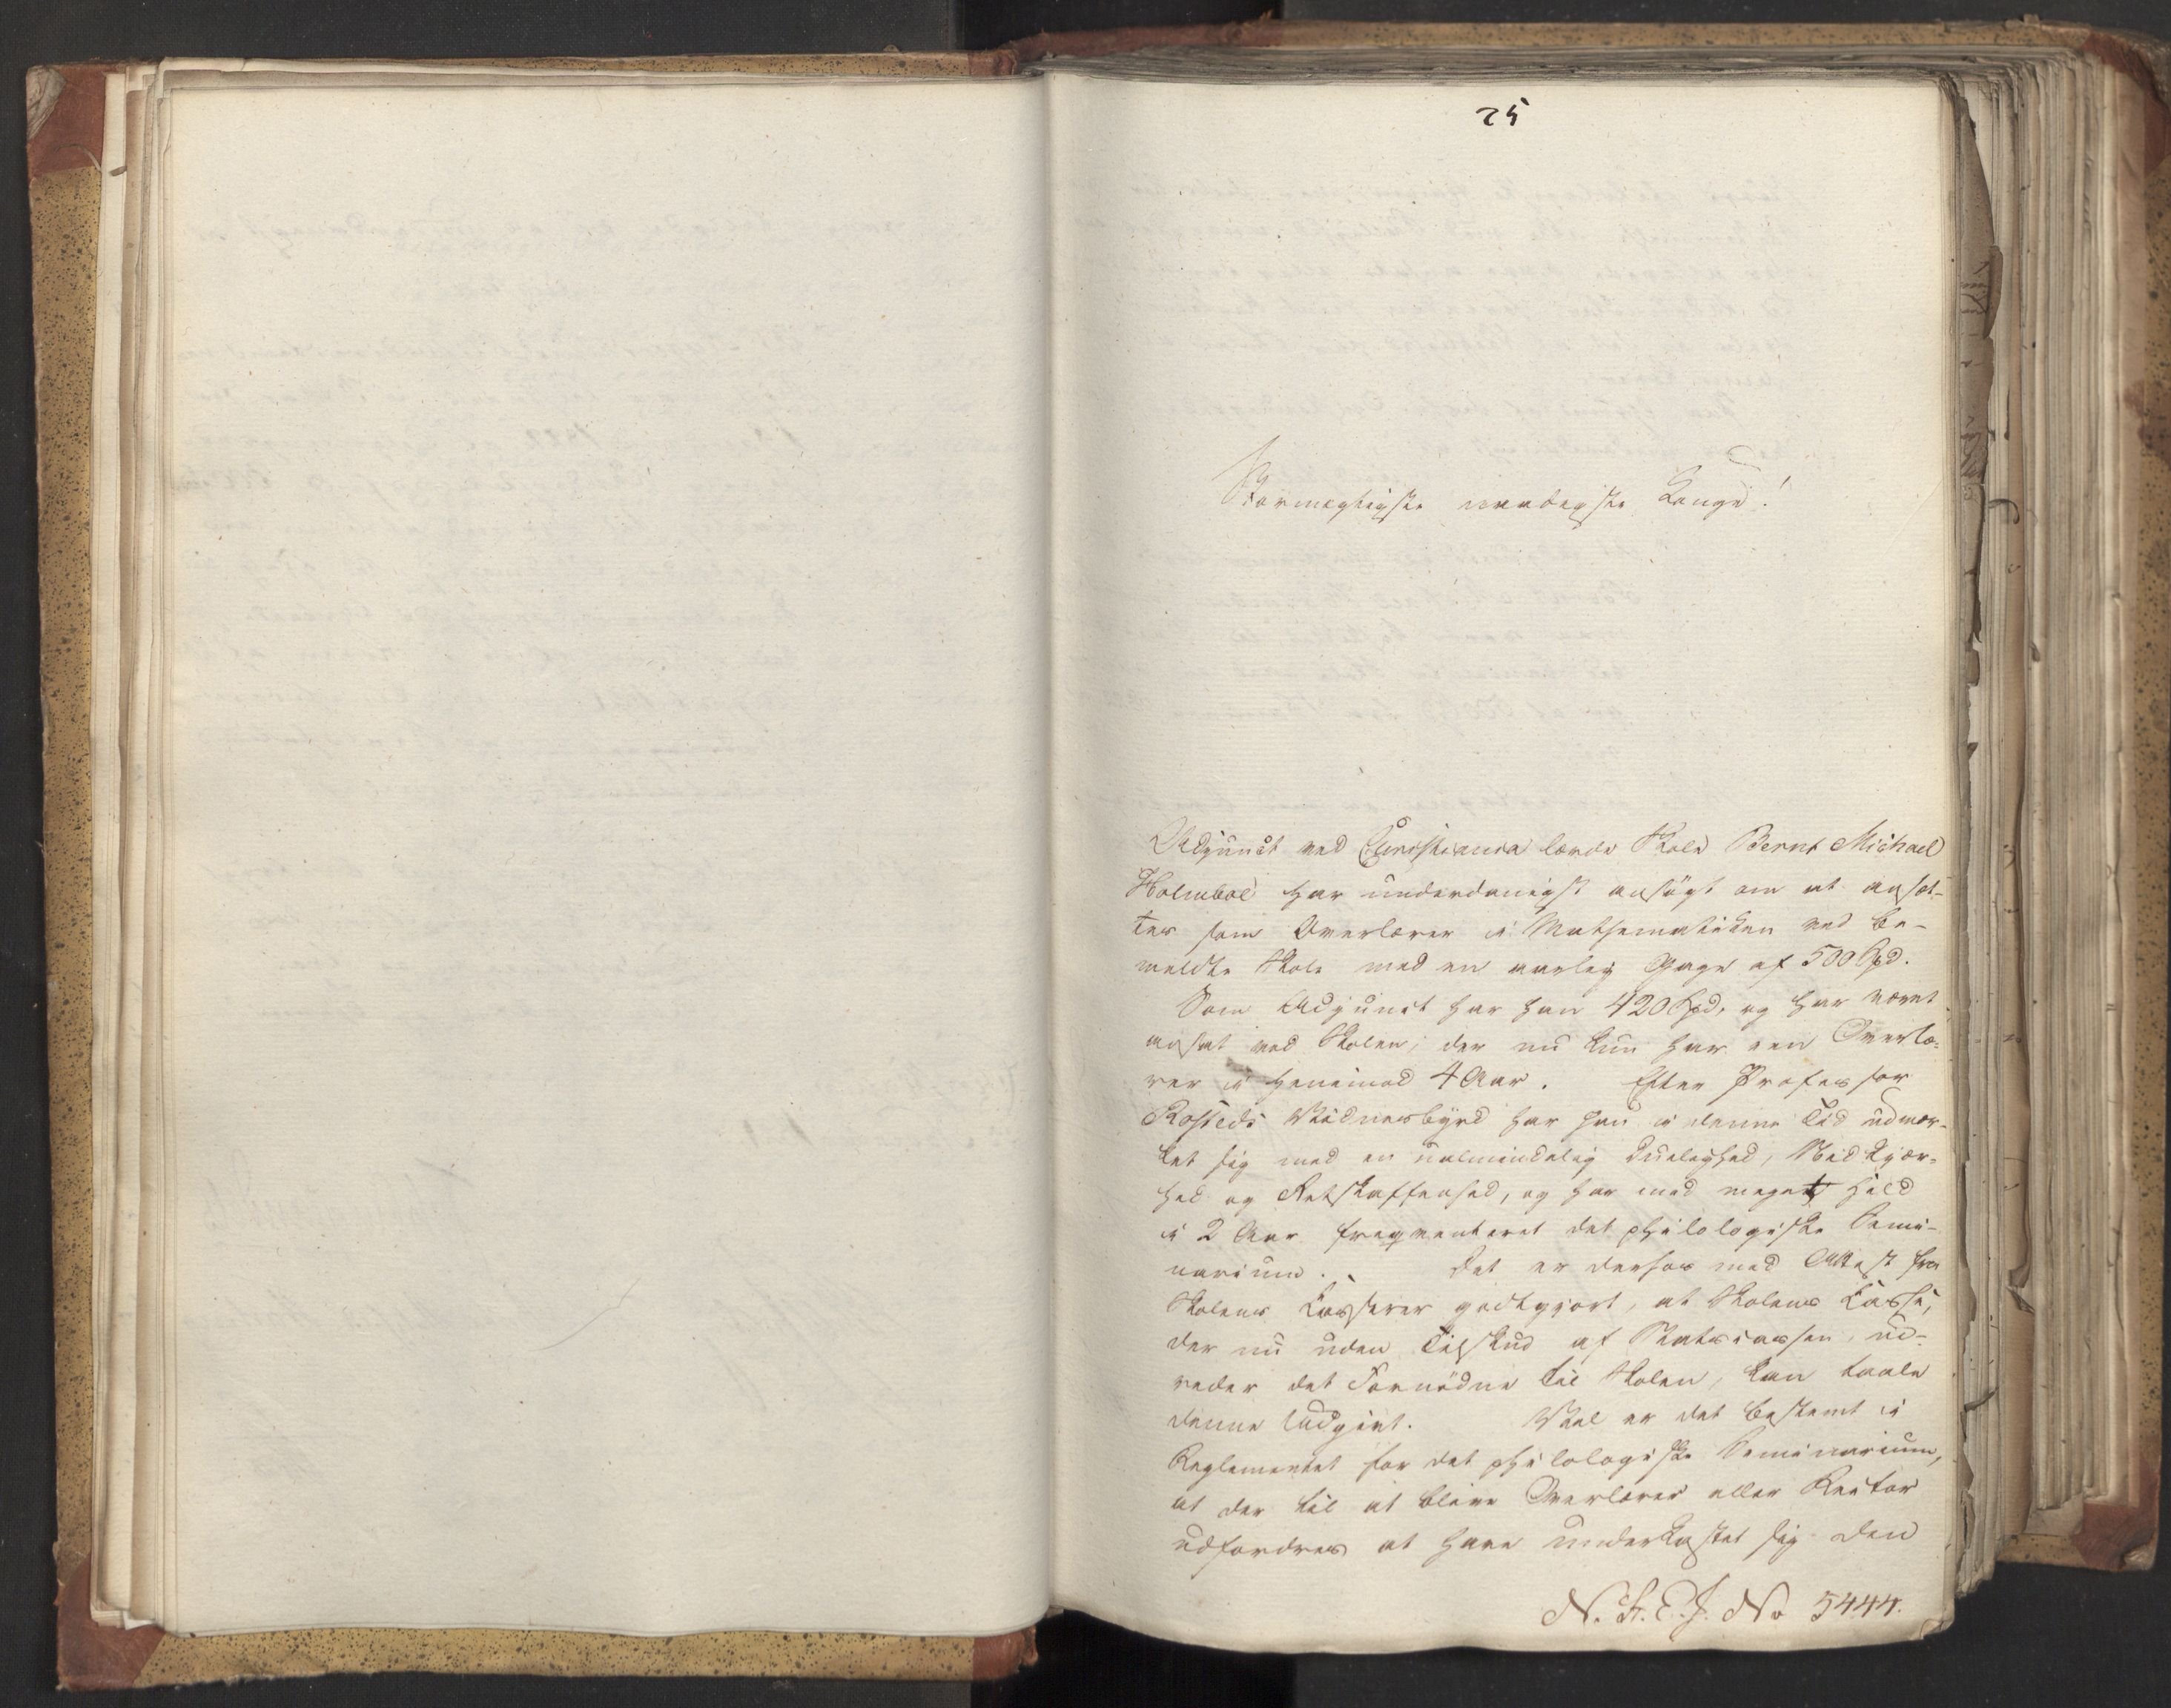 25
Stormægtigste naadigste Konge!
Adjunct ved Christiania lærde Skole Bernt Michael
Holmboe har underdanigst ansøgt om at ansæt-
tes som Overlærer i Mathematiken ved be-
meldte Skole med en aarlig Gage af 500 Spd.
Som Adjunct har han 420 Spd, og har været
ansat ved Skolen, der nu kun har een Overlæ-
rer i henimod 4 Aar. Efter Professor
Rosteds Vidnesbyrd har han i denne Tid udmær-
ket sig med en ualmindelig Duelighed, Nidkjær-
hed og Retskaffenhed, og har med meget Held
i 2 Aar frequenteret det philologiske Semi-
narium. Det er derhos med Attest fra
Skolens Casserer godtgjort, at Skolens Casse,
der nu uden Tilskud af Statscassen, ud-
reder det Fornødne til Skolen, kan taale
denne Udgivt. Vel er det bestemt i
Reglementet for det philologiske Seminarium,
at der til at blive Overlærer eller Rector
udfordres at have underkastet sig den
N. St. E. J. No 5444.